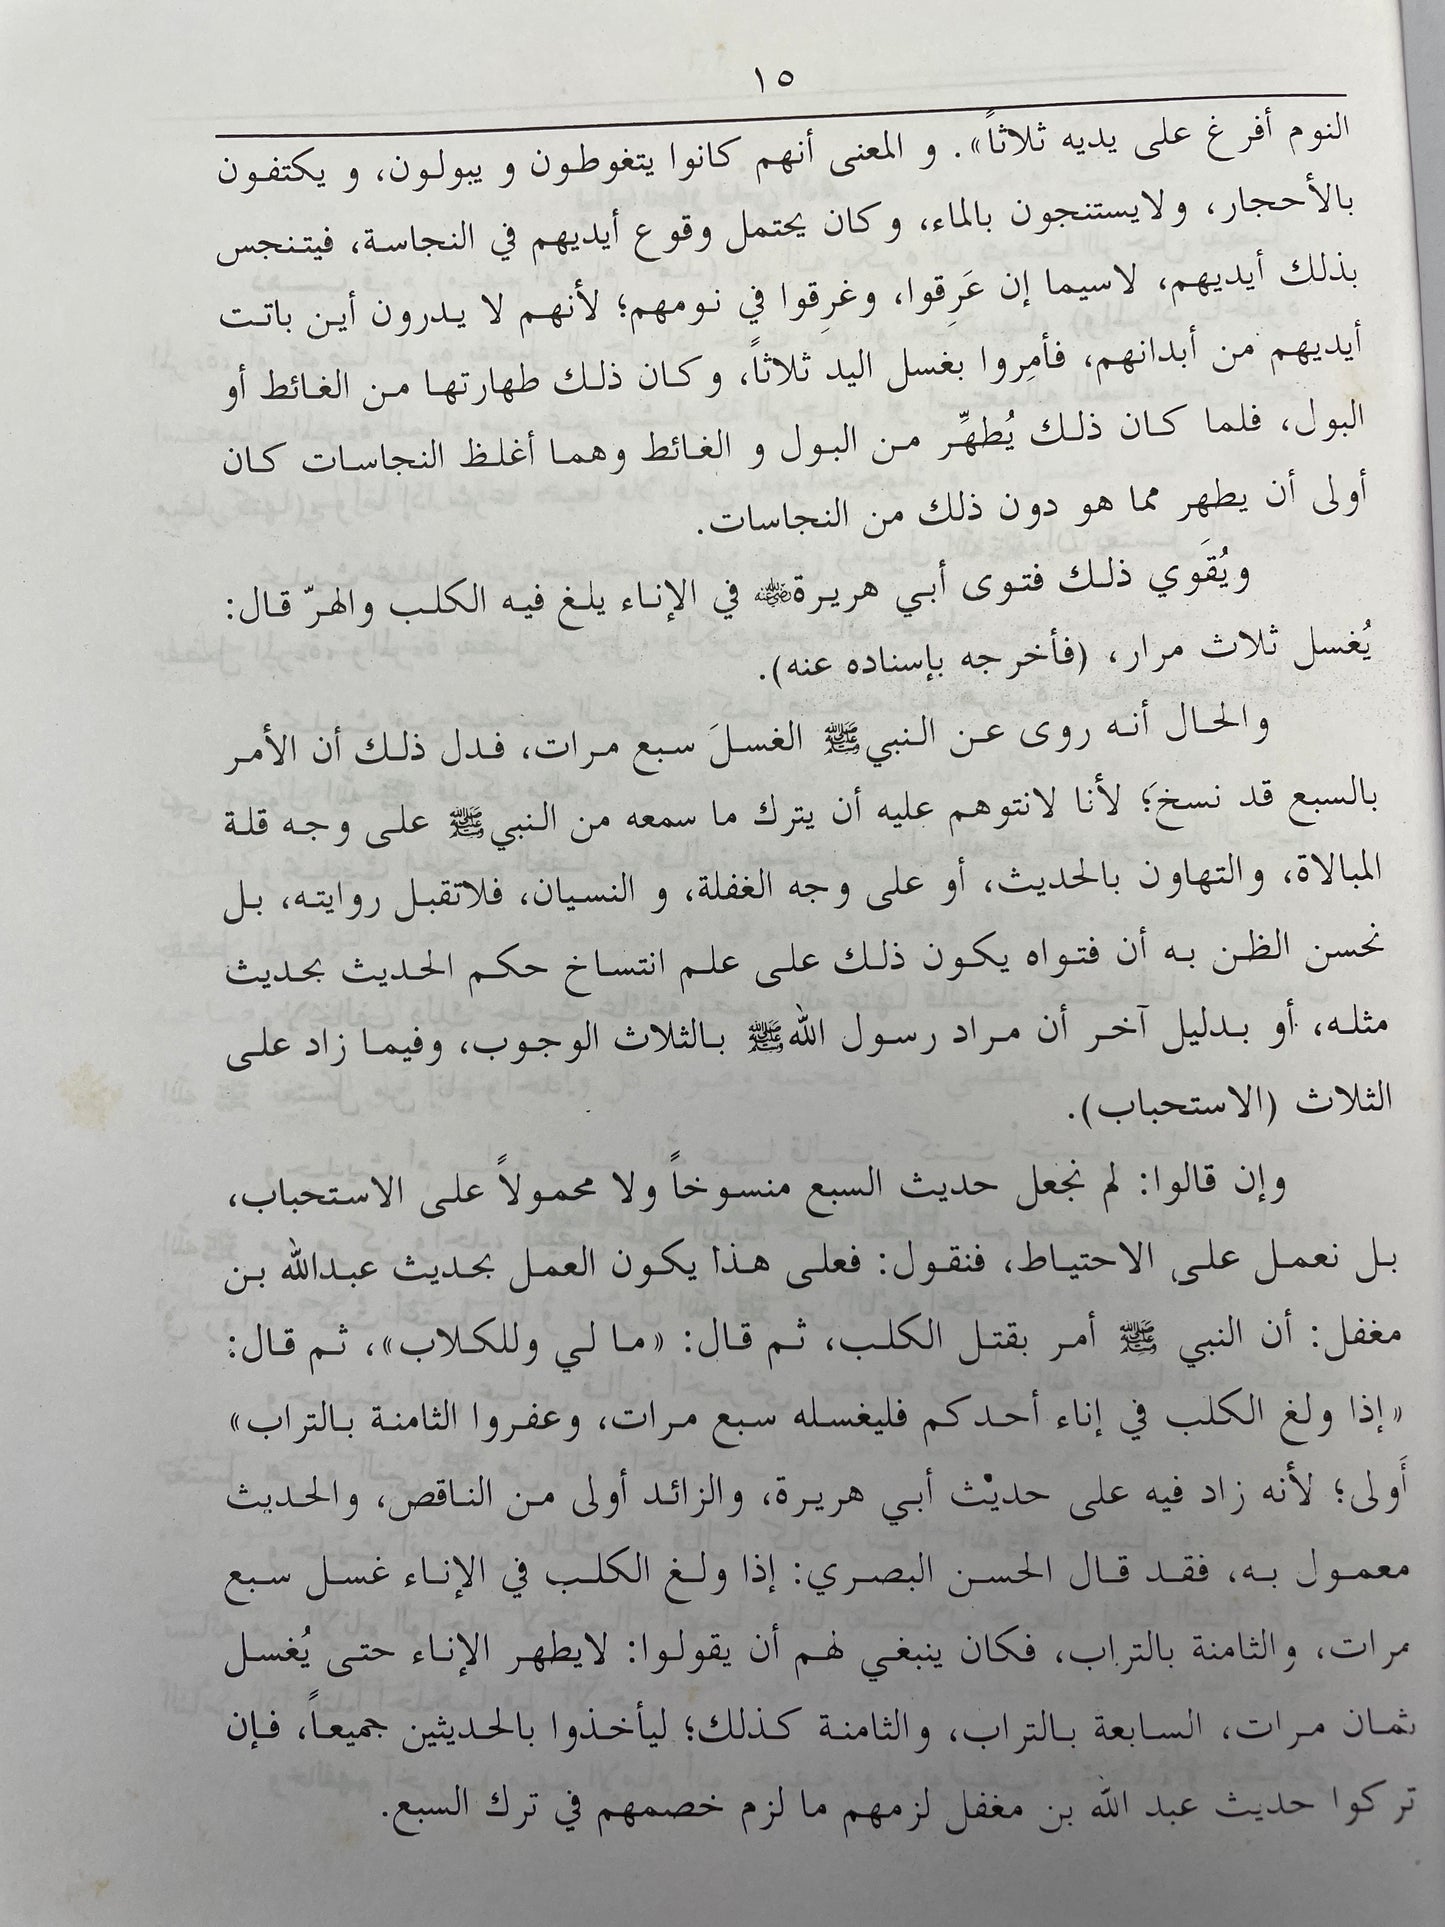 ١٥
النوم أفرغ على يديه ثلاثاً». و المعنى أنهم كانوا يتغوطون و يبولون، و يكتفون
بالأحجار، ولايستنجون بالماء، وكان يحتمل وقوع أيديهم في النجاسة، فيتنجس
بذلك أيديهم، لاسيما إن عَرِقوا، وغرِقوا في نومهم؛ لأنهم لا يدرون أين باتت
أيديهم من أبدانهم، فأمِروا بغسل اليد ثلاثاً، وكان ذلك طهارتها من الغائط أو
البول، فلما كان ذلك يُطهِّر من البول و الغائط وهما أغلظ النجاسات كان
أولى أن يطهر مما هو دون ذلك من النجاسات.
ويُقَوي ذلك فتوى أبي هريرة رضي الله عنه في الإناء يلغ فيه الكلب والهرّ قال:
يُغسل ثلاث مرار، (فأخرجه بإسناده عنه).
والحال أنه روى عن النبيﷺ الغسلَ سبع مرات، فدل ذلك أن الأمر
بالسبع قد نسخَ؛ لأنا لانتوهم عليه أن يترك ما سمعه من النبيﷺ على وجه قلة
المبالاة، والتهاون بالحديث، أو على وجه الغفلة، و النسيان، فلاتقبل روايته، بل
نحسن الظن به أن فتواه يكون ذلك على علم انتساخ حكم الحديث بحديث
مثله، أو بدليل آخر أن مراد رسول اللهﷺ بالثلاث الوجوب، وفيما زاد على
الثلاث (الاستحباب).
وإن قالوا: لم نجعل حديث السبع منسوخاً ولا محمولاً على الاستحباب،
بل نعمل على الاحتياط، فنقول: فعلى هذا يكون العمل بحديث عبدالله بن
مغفل: أن النبي ﷺ أمر بقتل الكلب، ثم قال: «ما لي وللكلاب»، ثم قال:
«إذا ولغ الكلب في إناء أحدكم فليغسله سبع مرات، وعفروا الثامنة بالتراب»
أَولى؛ لأنه زاد فيه على حديْث أبي هريرة، والزائد أولى من الناقص، والحديث
معمول به، فقد قال الحسن البصري: إذا ولغ الكلب في الإناء غسل سبع
مرات، والثامنة بالتراب، فكان ينبغي لهم أن يقولوا: لايطهر الإناء حتى يُغسل
ثمان مرات، السابعة بالتراب، والثامنة كذلك؛ ليأخذوا بالحديثين جميعاً، فإن
تركوا حديث عبد الله بن مغفل لزمهم ما لزم خصمهم في ترك السبع.